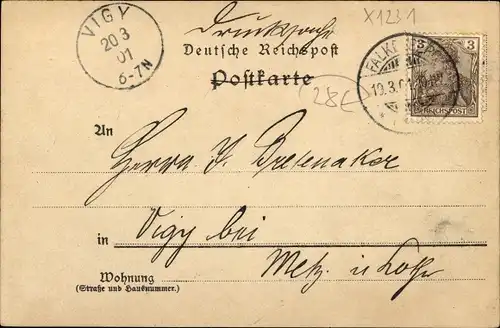 VIGY
20 3
01
6-7N
Drucksache
X1231
Deutsche Reichspost
Postkarte
28E
FALK
19.3.01
3 3
REICHSPOST
An
Herrn J.
in Vigy bei
Metz i/Lothr
Wohnung
(Straße und Hausnummer.)